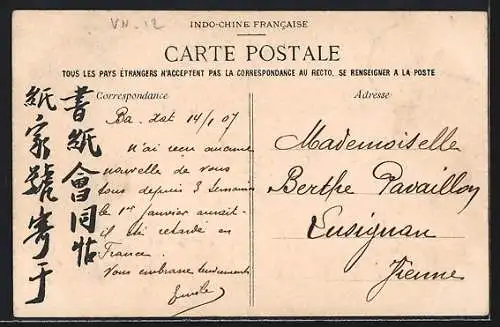 VN-12
INDO-CHINE FRANÇAISE
CARTE POSTALE
TOUS LES PAYS ÉTRANGERS N'ACCEPTENT PAS LA CORRESPONDANCE AU RECTO. SE RENSEIGNER A LA POSTE
Correspondance
Ba. dat 14/1 07
N'ai reçu aucune
nouvelle de vous
tous depuis 3 Semaines
le 1er Janvier
il été retardé en
France.
Vous embrasse tendrement
Adresse
Mademoiselle
Berthe Pavaillon
Lusignan
Vienne
書紙會同帖
紙家號寄于